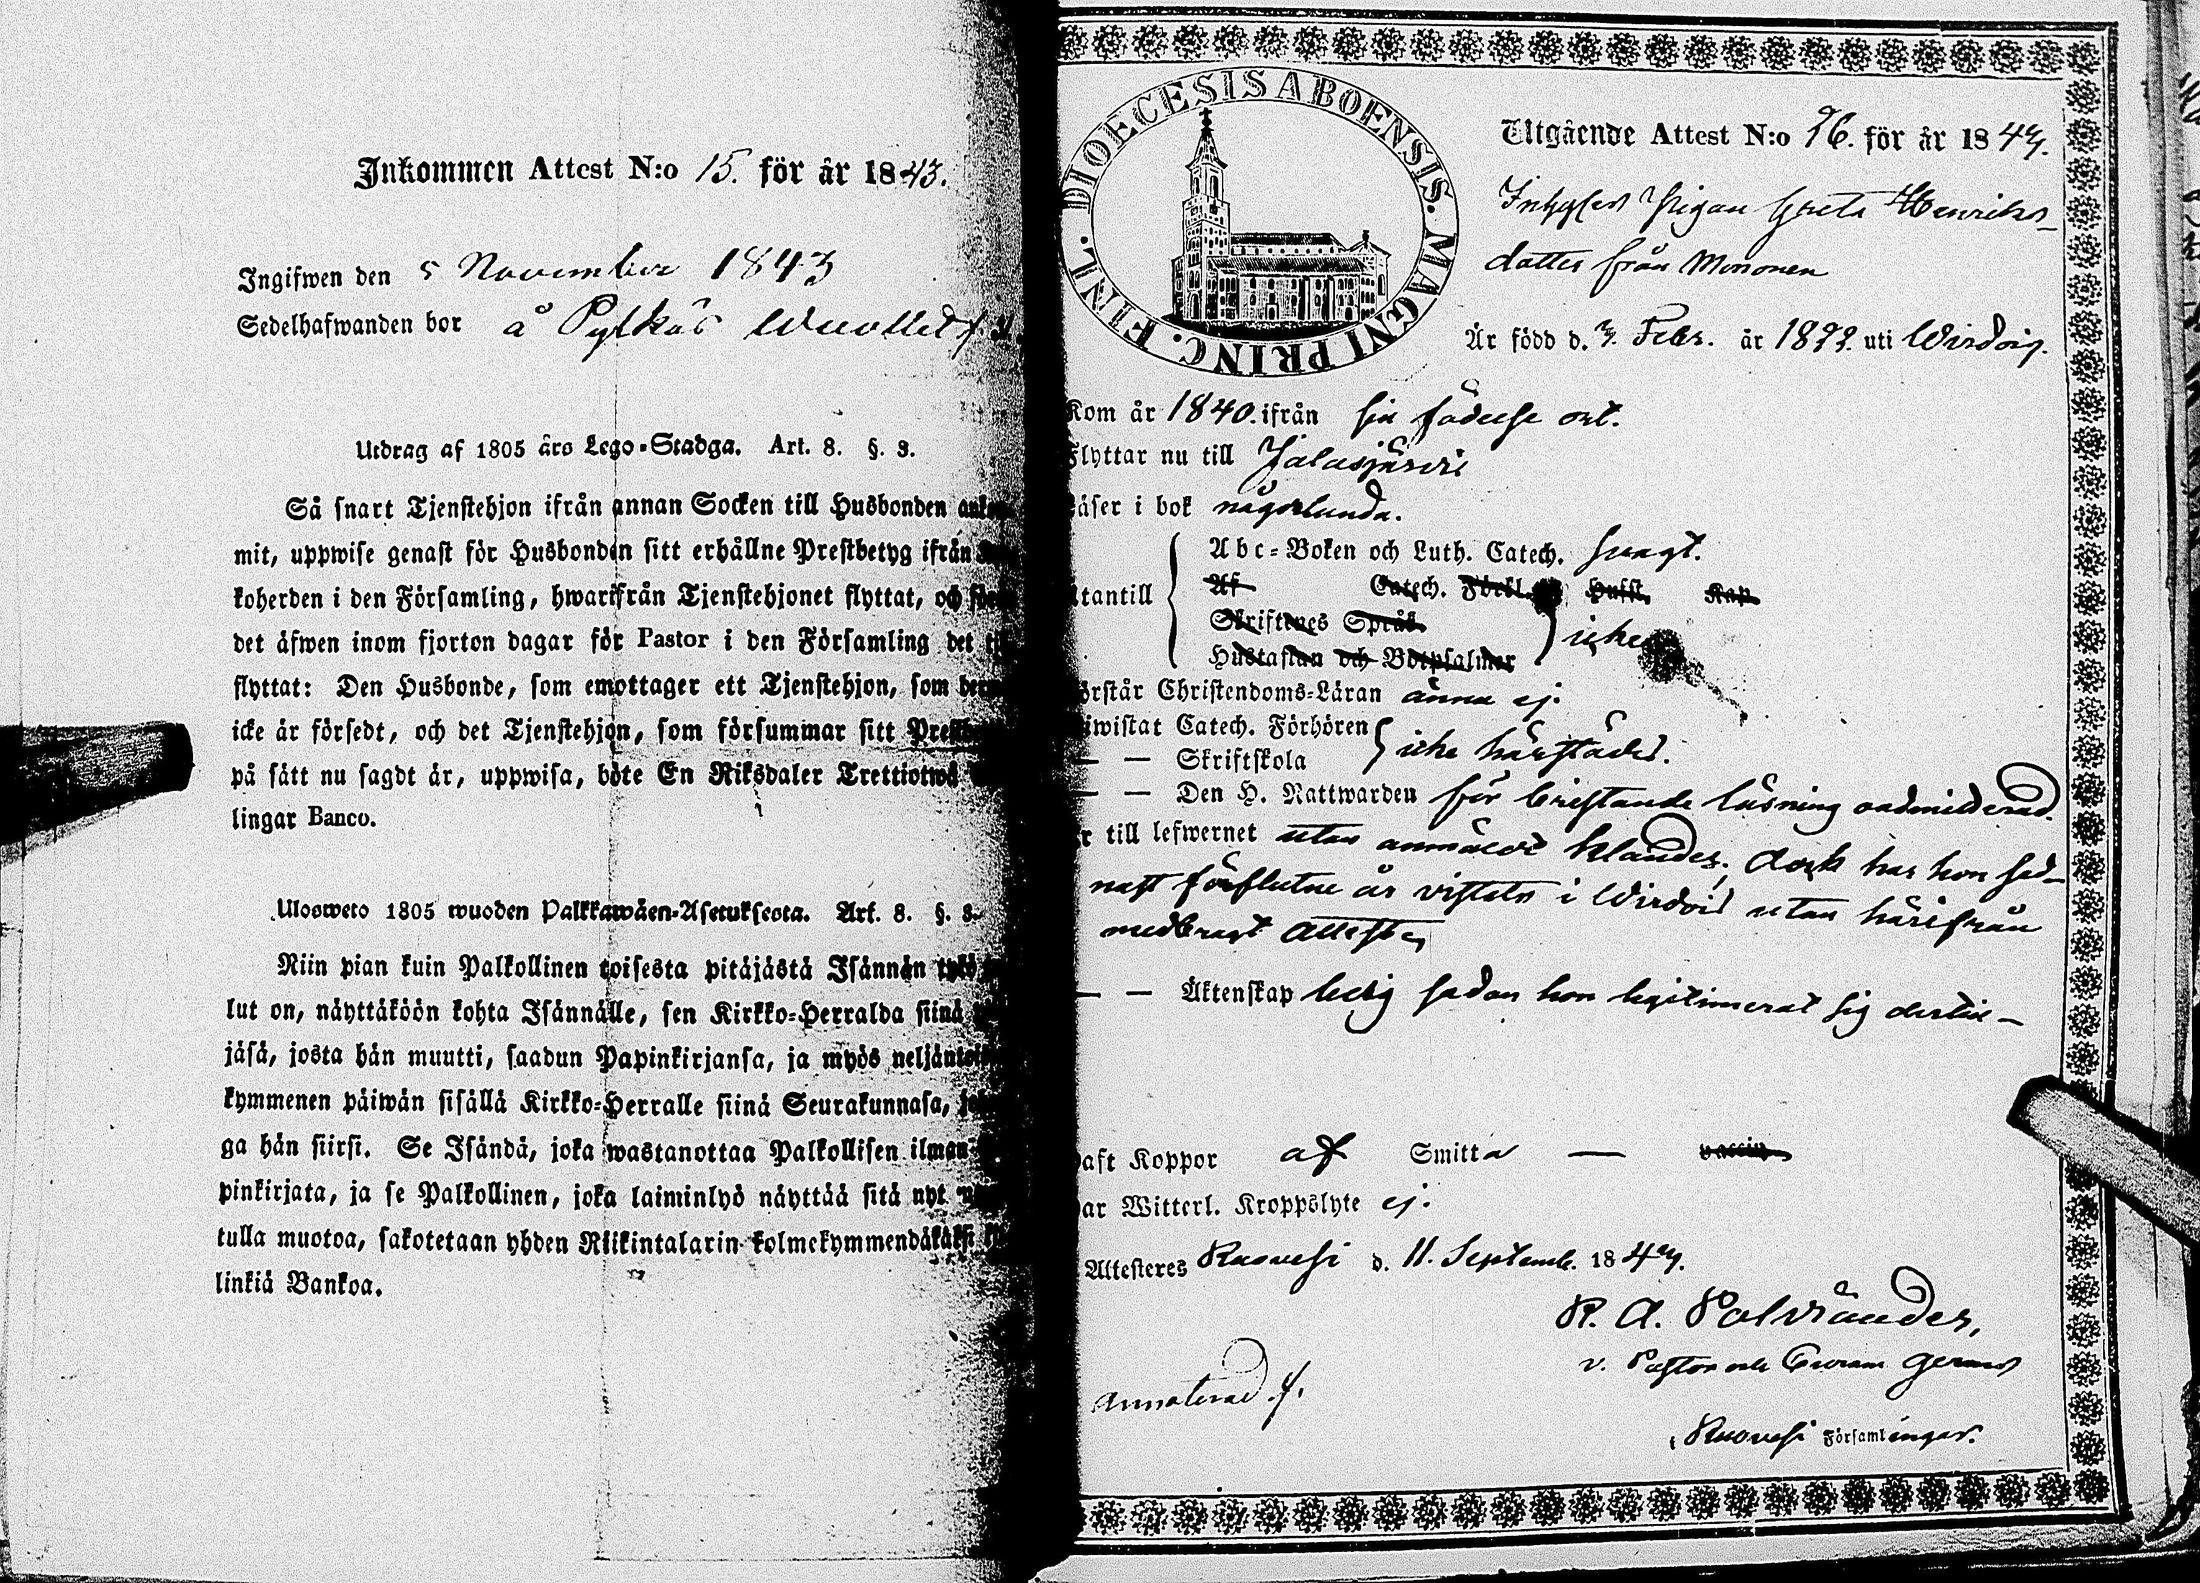 Inkommen Attest N:o 15. för år 1843.
Ingifwen den 5 November 1843
Sedelhafwanden bor å Pylkäs
Utdrag af 1805 års Lego-Stadga. Art. 8. §. 3.
Så snart Tjenstehjon ifrån annan Socken till Husbonden
mit, uppwise genast för Husbonden sitt erhållne Prestbetyg ifrån
koherden i den Församling, hwarifrån Tjenstehjonet flyttat, och
det äfwen inom fjorton dagar för Pastor i den Församling det
flyttat: Den Husbonde, som emottager ett Tjenstehjon, som
icke är försedt, och det Tjenstehjon, som försummar sitt
på sätt nu sagdt är, uppwisa, böte En Riksdaler Trettiotwå
lingar Banco.
Ulosweto 1805 wuoden Palkkawäen-Asetuksesta. Art. 8. §. 3.
Niin pian kuin Palkollinen toisesta pitäjästä Isännän tykö
lut on, näyttäköön kohta Isännälle, sen Kirkko-Herralda siinä
jäsä, josta hän muutti, saadun Papinkirjansa, ja myös
kymmenen päiwän sisällä Kirkko-Herralle siinä Seurakunnasa,
ga hän siirsi. Se Isändä, joka wastanottaa Palkollisen ilman
pinkirjata, ja se Palkollinen, joka laiminlyö näyttää sitä nyt
tulla muotoa, sakotetaan yhden Riikintalarin kolmekymmendäkäksi
linkiä Bankoa.
DIOECESIS ABOENSIS. MAGNI PRINC. FINL.
Utgående Attest N:o 76. för år 1843.
Inhyses Pigan Greta Henriks
dotter från Mononen
Är född d. 3. Febr. år 1822. uti Wirdois.
Kom år 1840. ifrån sin födelse ort.
Flyttar nu till Jalasjärvi
äser i bok någorlunda.
Abc-Boken och Luth. Catech. svagt.
tantill Af Catech. Förkl. Husst. Kap.
Skriftenes Språk.
Hustaflan och Botpsalmer icke
örstår Christendoms-Läran ännu ej.
iwistat Catech. Förhören
— — Skriftskola icke härstädes.
— — Den H. Nattwarden för bristande läsning oadmitterad.
r till lefwernet utan anmäldt klander; dock har hon sed-
nast förflutne år vistats i Wirdois utan härifrån
medbragt Attest,
— — Äktenskap ledig sedan hon legitimerat sig dertill
aft Koppor af Smitta — vaccin
ar Witterl. Kroppslyte ej.
Attesteres Ruovesi d. 11. Septemb. 1843.
v. Pastor
Annoterad
i Ruovesi Församlingar.